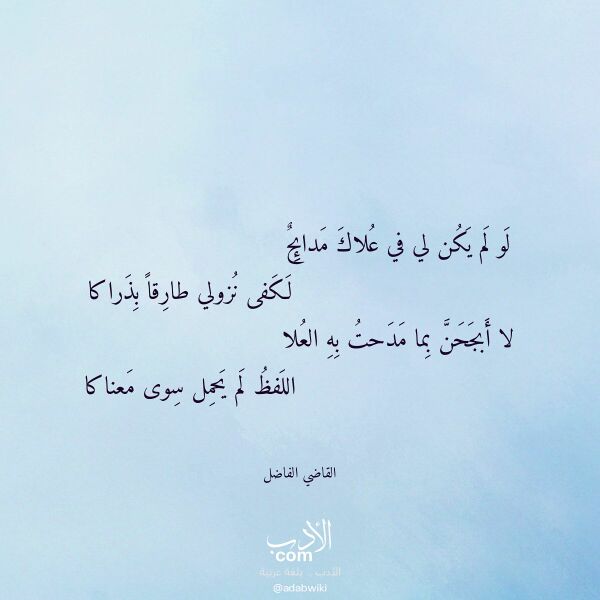 لَو لَم يَكُن لي في عُلاكَ مَدائِحٌ
لَكَفى نُزولي طارِقاً بِذَراكا
لا أَبجَحَنَّ بِما مَدَحتُ بِهِ العُلا
اللَفظُ لَم يَحمِل سِوى مَعناكا
القاضي الفاضل
الأدب
com
الأدب .. بلغة عربية
@adabwiki